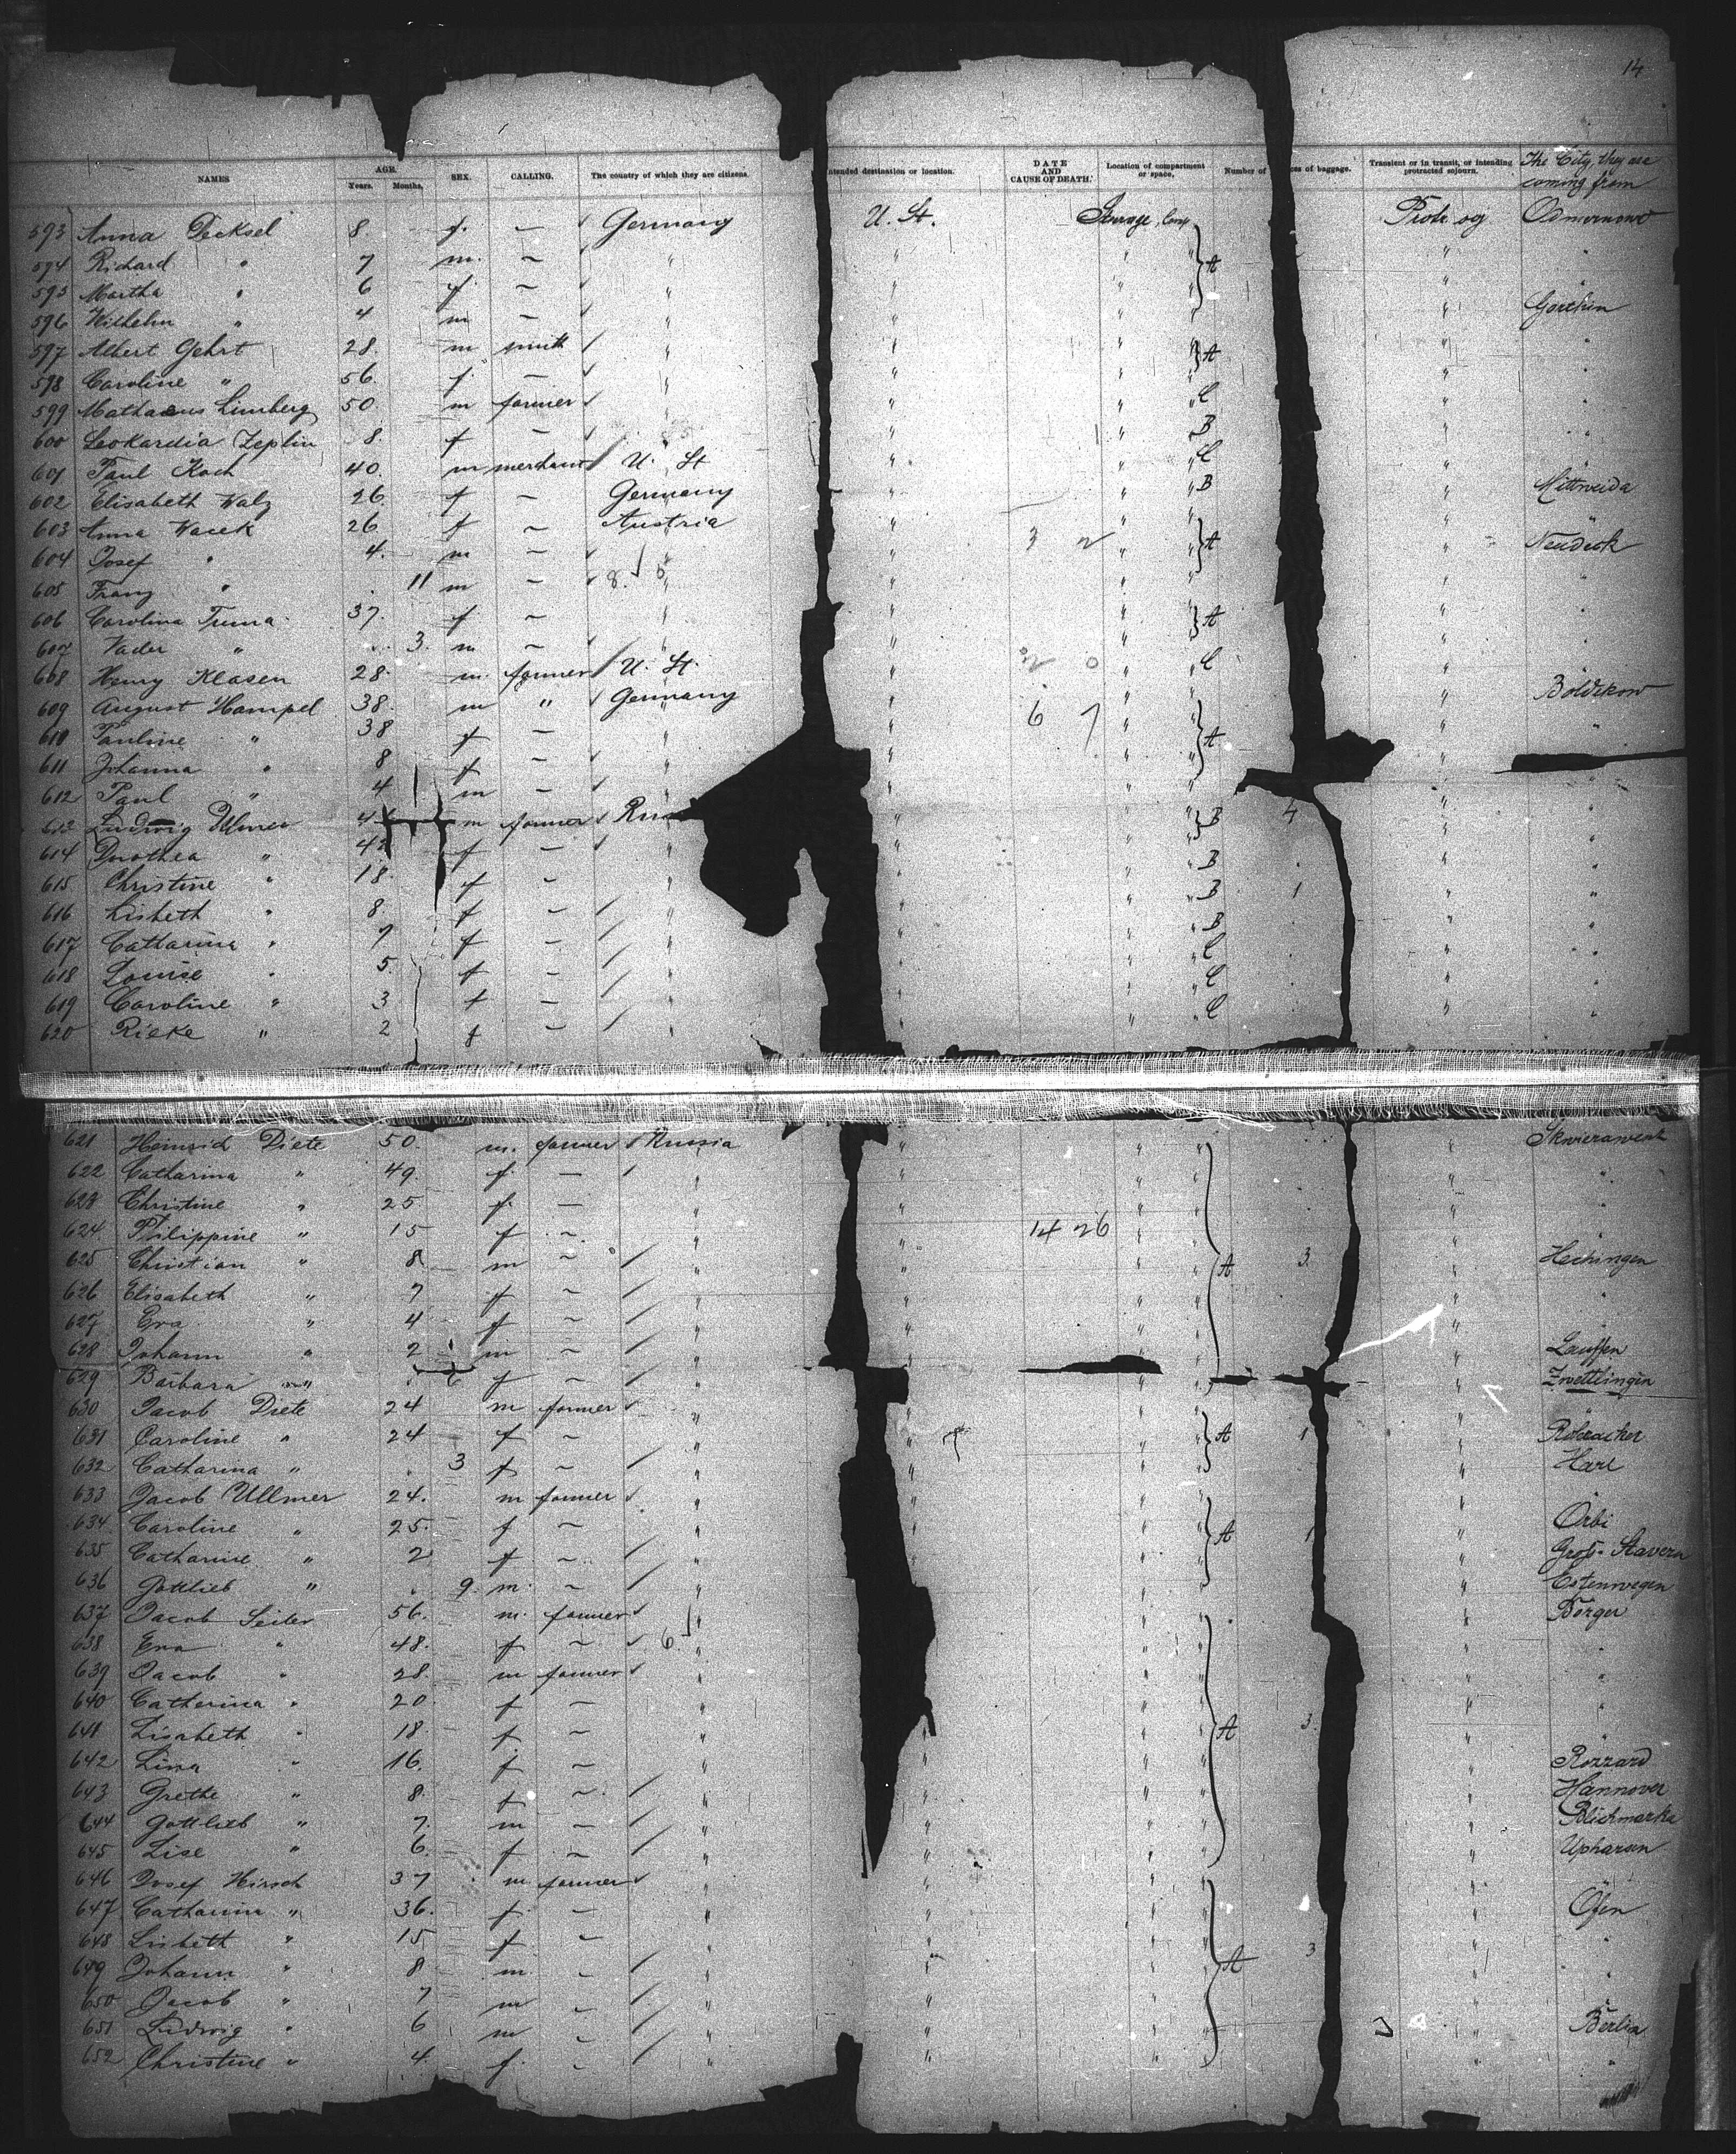 14
NAMES. AGE. Years. Months. SEX. CALLING. The country of which they are citizens. ntended destination or location. DATE AND CAUSE OF DEATH. Location of compartment or space. Number of ces of baggage. Transient or in transit, or intending protracted sojourn. The City, they are coming from
593 Anna Decksel 8. f. — Germany U. St. Steerage, Comp. Protr soj
594 Richard " 7 m. — " " " " A "
595 Martha " 6 f — " " " " "
596 Wilhelm " 4 m — " " " " "
597 Albert Gehrt 28. m smith " " " " A "
598 Caroline " 56. f. — " " " " "
599 Mathaeus Limberg 50. m farmer " " " " C "
600 Leokardia Zeplin 8. f — " " " " B "
601 Paul Koch 40. m merchant U. St " " " C "
602 Elisabeth Walz 26. f — Germany " " " B " Mittweida
603 Anna Wacek 26 f — Austria " " " "
604 Josef " 4. m — " " 3 2 " " A " Neudeck
605 Franz " 11 m — " 8. " " " "
606 Carolina Tuma 37. f — " " " " A "
607 " 3. m — " " " " "
608 Henry Klasen 28. m. farmer U. St. " " " C "
609 August Hampel 38. m " Germany " 6 7 " " " Boldekow
610 Pauline " 38 f — " " " A " "
611 Johanna " 8 f — " " " "
612 Paul " 4 m — " " " " "
613 Ludwig Ulmer 4 m farmer Rus " " " B 4 "
614 Dorothea " 42 f — " " " B " "
615 Christine " 18. f — " " " B 1 " "
616 Lisbeth " 8. f — " " " " B " "
617 Catharina " 7 f — " " " " C " "
618 Louise " 5. f — " " " " C " "
619 Caroline " 3 f — " " " " C " "
620 Rieke " 2 f — " " " " "
621 Heinrich Diete 50. m. farmer Russia " " " "
622 Catharina " 49. f. — " " " " " "
623 Christine " 25 f. — " " " " "
624. Philippine " 15 f — " " 14 26 " " "
625 Christian " 8. m — " " " " A 3. " Hechingen
626 Elisabeth " 7 f — " " " " "
627 Eva " 4 f — " " " " "
628 Johann " 2 m — " " " " " Lauffen
629 Barbara " f — " " " " " Zwettlingen
630 Jacob Diete 24 m farmer " " " " "
631 Caroline " 24 f — " " " " A 1 "
632 Catharina " 3 f — " " " " "
633 Jacob Ullmer 24. m farmer " " " " "
634 Caroline " 25. f — " " " " A 1 " Orbi
635 Catharine " 2 f — " " " " " Groß-Stavern
636 Gottlieb " 9. m. — " " " " " Esterwegen
637 Jacob Seiler 56. m. farmer " " " " " Börger
638 Eva " 48. f — 6 " " " "
639 Jacob " 28. m farmer " " " " "
640 Catherina " 20. f — " " " " "
641 Lisabeth " 18. f — " " " " A 3. "
642 Lina " 16. f — " " " " " Rozzard
643 Grethe " 8. f — " " " " " Hannover
644 Gottlieb " 7. m — " " " " "
645 Lise " 6. f — " " " " "
646 Josef Hirsch 37 m farmer " " " " "
647 Catharina " 36. f. — " " " " " Ofen
648 Lisbeth " 15 f — " " " " "
649 Johann " 8 m. — " " " " A 3 "
650 Jacob " 7 m — " " " " "
651 Ludwig " 6 m — " " " " Berlin
652 Christine " 4. f. — " " " " "